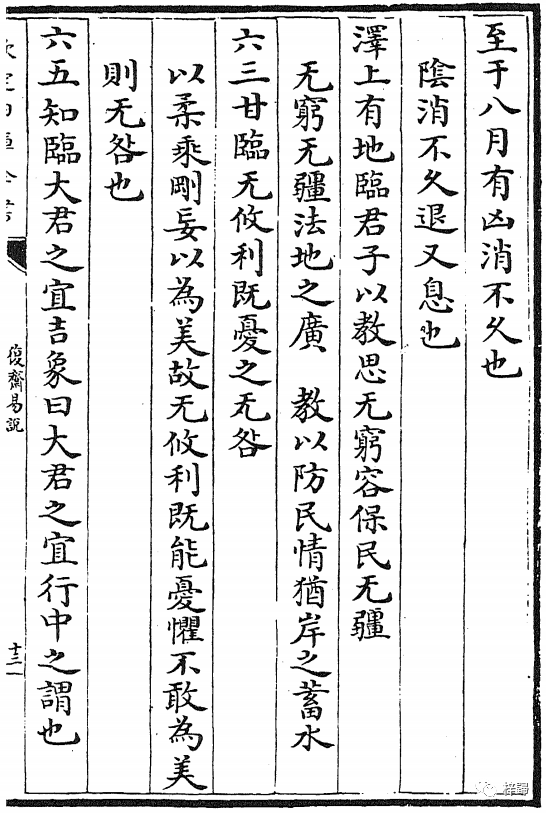 至于八月有凶消不久也
陰消不久退又息也
澤上有地臨君子以教思无窮容保民无疆
无窮无疆法地之廣　教以防民情猶岸之蓄水
六三甘臨无攸利既憂之无咎
以柔乘剛妄以為美故无攸利既能憂懼不敢為美
則无咎也
六五知臨大君之宜吉象曰大君之宜行中之謂也
復齋易說
梓歸